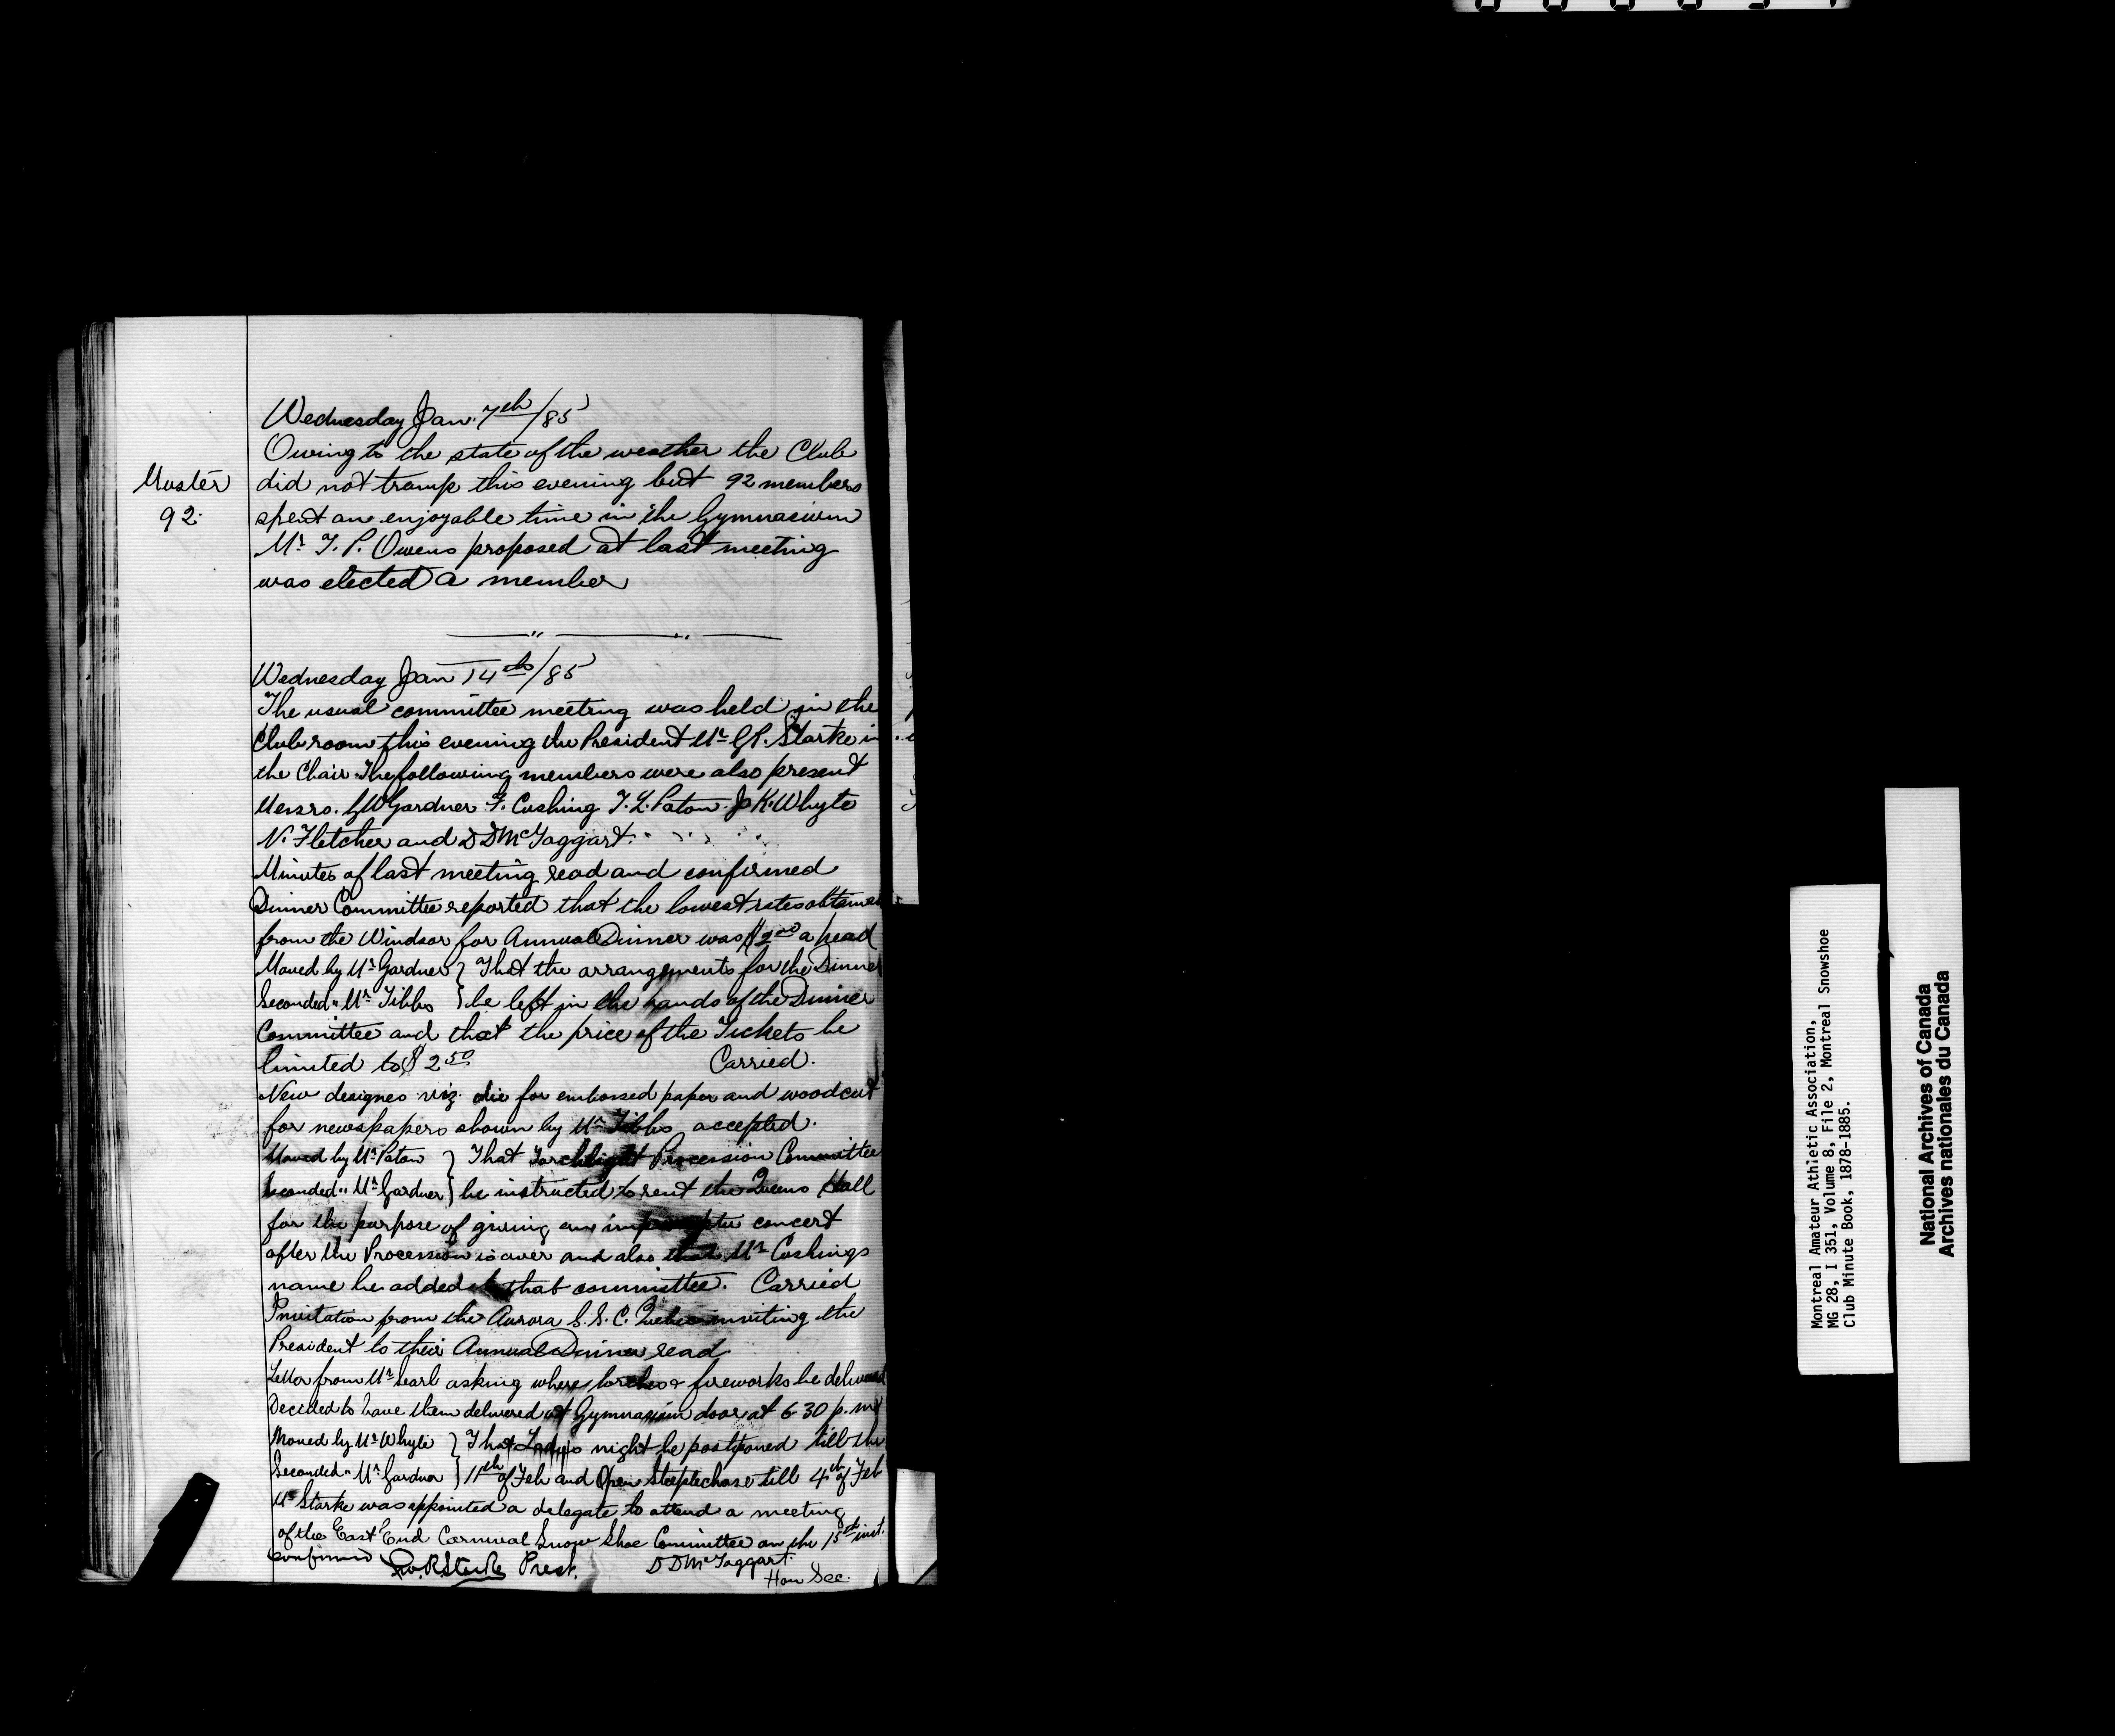 Wednesday Jan. 7th/85
Owing to the state of the weather the Club
Muster
did not tramp this evening but 92 members
92.
spent an enjoyable time in the Gymnasium
Mr T. P. Owens proposed at last meeting
was elected a member
Wednesday Jan 14th/85
The usual committee meeting was held in the
Club room this evening the President Mr G.R. Starke in
the Chair. The following members were also present
Messrs. G W Gardner F. Cushing T. L. Paton. J K. Whyte
N. Fletcher and D D McTaggart.
Minutes of last meeting read and confirmed
Dinner Committee reported that the lowest rates obtained
from the Windsor for Annual Dinner was $2.00 a head
Moved by Mr Gardner } That the arrangements for the Dinner
Seconded " Mr Tibbs } be left in the hands of the Dinner
Committee and that the price of the Tickets be
limited to $2.50 Carried.
New designes viz. die for embossed paper and woodcut
for newspapers shown by Mr Tibbs accepted.
Moved by Mr Paton } That Torchlight Procession Committee
Seconded " Mr Gardner } be instructed to rent the Queens Hall
for the purpose of giving an impromptu concert
after the Procession is over and also that Mr Cushings
name be added to that committee. Carried
Invitation from the Aurora S. S. C. Quebec inviting the
President to their Annual Dinner read
Letter from Mr Searl asking where torches & fireworks be delivered
Decided to have them delivered at Gymnasium door at 6.30 p.m
Moved by Mr Whyte } That Ladys night be postponed till the
Seconded " Mr Gardner } 11th of Feb and Open Steeplechase till 4th of Feb
Mr Starke was appointed a delegate to attend a meeting
of the East End Carnival Snow Shoe Committee on the 15th inst.
confirmed Geo. R Starke Prest. D D McTaggart.
Hon Sec.
Montreal Amateur Athletic Association,
MG 28, I 351, Volume 8, File 2, Montreal Snowshoe
Club Minute Book, 1878-1885.
National Archives of Canada
Archives nationales du Canada